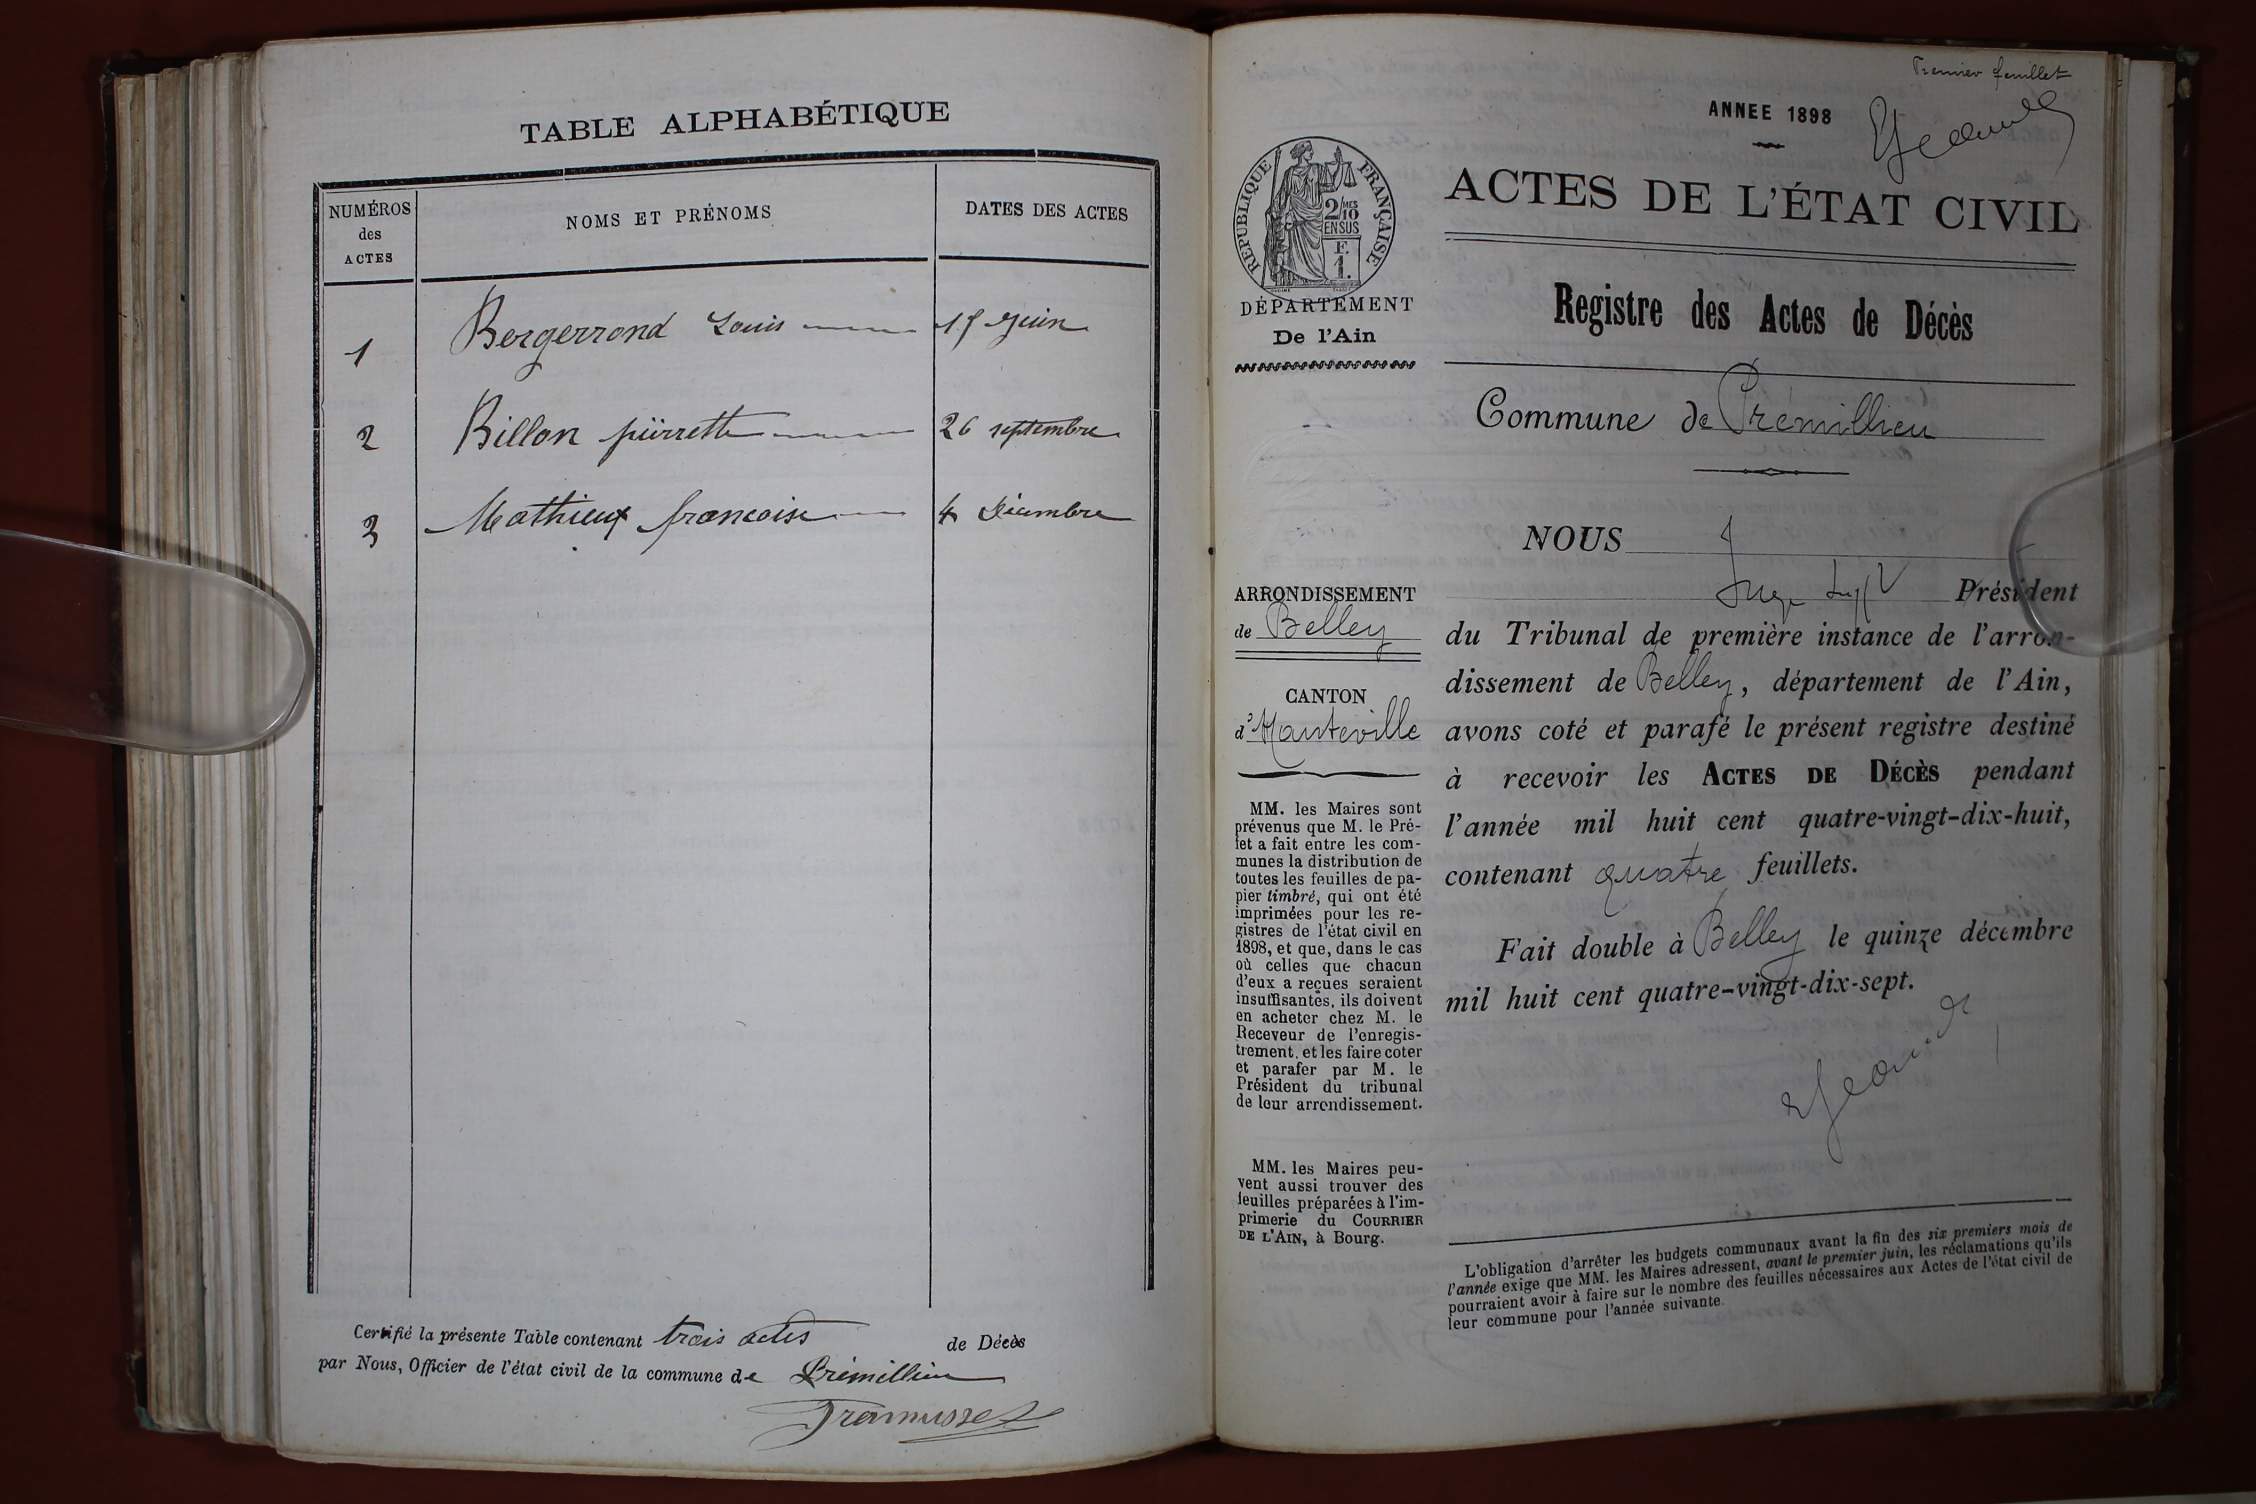 TABLE ALPHABÉTIQUE
NUMÉROS
des
ACTES
NOMS ET PRÉNOMS
DATES DES ACTES
1 Bergerrond Louis 15 Juin
2 Billon pierrette 26 septembre
3 Mathieux francoise 4 Décembre
Certifié la présente Table contenant trois actes de Décès
par Nous, Officier de l'état civil de la commune de Prémillieu
Tramusset
Premier feuillet
ANNEE 1898
ACTES DE L'ÉTAT CIVIL
Registre des Actes de Décès
Commune de Prémillieu
RÉPUBLIQUE FRANÇAISE
2/MES
10
EN SUS
F.
1.
DÉPARTEMENT
De l'Ain
ARRONDISSEMENT
de Belley
CANTON
d'Hauteville
MM. les Maires sont
prévenus que M. le Pré-
fet a fait entre les com-
munes la distribution de
toutes les feuilles de pa-
pier timbré, qui ont été
imprimées pour les re-
gistres de l'état civil en
1898, et que, dans le cas
où celles que chacun
d'eux a reçues seraient
insuffisantes, ils doivent
en acheter chez M. le
Receveur de l'enregis-
trement, et les faire coter
et parafer par M. le
Président du tribunal
de leur arrondissement.
MM. les Maires peu-
vent aussi trouver des
feuilles préparées à l'im-
primerie du COURRIER
DE L'AIN, à Bourg.
NOUS
Juge Suppt Président
du Tribunal de première instance de l'arron-
dissement de Belley, département de l'Ain,
avons coté et parafé le présent registre destiné
à recevoir les ACTES DE DÉCÈS pendant
l'année mil huit cent quatre-vingt-dix-huit,
contenant quatre feuillets.
Fait double à Belley le quinze décembre
mil huit cent quatre-vingt-dix-sept.
L'obligation d'arrêter les budgets communaux avant la fin des six premiers mois de
l'année exige que MM. les Maires adressent, avant le premier juin, les réclamations qu'ils
pourraient avoir à faire sur le nombre des feuilles nécessaires aux Actes de l'état civil de
leur commune pour l'année suivante.